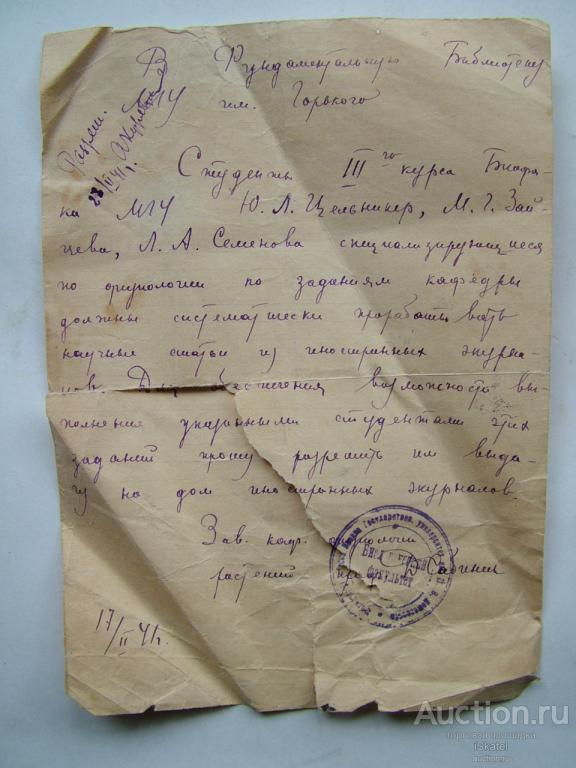 В Фундаментальную Библиотеку
МГУ им. Горького
Разреш.
28/II 41г.
Студенты III го курса Биофа-
ка МГУ Ю. Л. Цельникер, М. Г. Зай-
цева, Л. А. Семенова специализирующиеся
по физиологии по заданиям кафедры
должны систематически прорабатывать
научные статьи из иностранных журна-
лов. Для обеспечения возможности вы-
полнения указанными студентами этих
заданий прошу разрешить им выда-
чу на дом иностранных журналов.
Зав. каф. физиологии
растений проф. Сабинин
Биологический
факультет
17/II 41г.
Auction.ru
торговая площадка
iSkatel
auction.ru